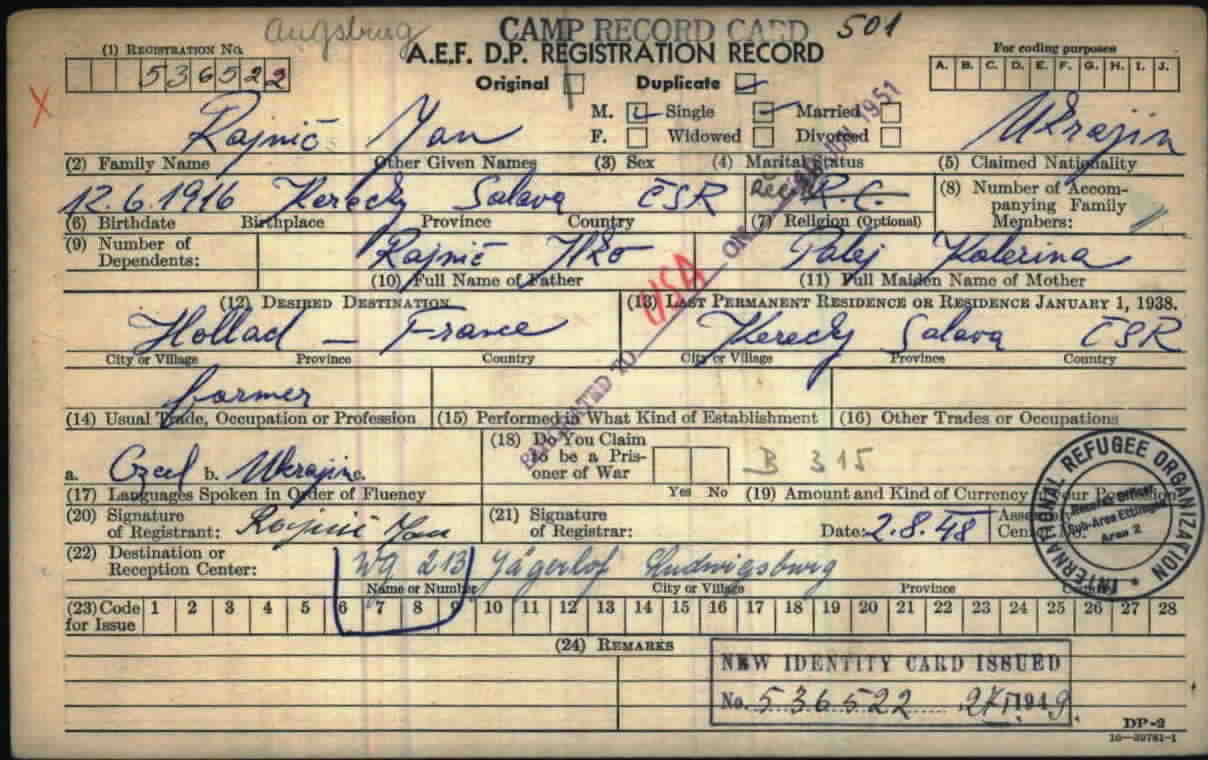 Augsburg CAMP RECORD CARD 501
(1) REGISTRATION NO. A.E.F. D.P. REGISTRATION RECORD For coding purposes
536522 Original Duplicate A. B. C. D. E. F. G. H. I. J.
X
M. Single Married
Rajnič Jan Ukrajin
F. Widowed Divorced
(2) Family Name Other Given Names (3) Sex (4) Marital Status (5) Claimed Nationality
12.6.1916 Kerecky Salava ČSR R.C. (8) Number of Accompanying Family Members:
(6) Birthdate Birthplace Province Country (7) Religion (Optional)
(9) Number of Dependents: Rajnič Ilko Palej Katerina
(10) Full Name of Father (11) Full Maiden Name of Mother
(12) DESIRED DESTINATION (13) LAST PERMANENT RESIDENCE OR RESIDENCE JANUARY 1, 1938.
Hollad – France Kerecky Salava ČSR
City or Village Province Country City or Village Province Country
USA
TO ON 1951
farmer
(14) Usual Trade, Occupation or Profession (15) Performed in What Kind of Establishment (16) Other Trades or Occupations
a. Czech b. Ukrajin c. (18) Do You Claim to be a Prisoner of War B 315
(17) Languages Spoken in Order of Fluency Yes No (19) Amount and Kind of Currency in Your Possession
(20) Signature of Registrant: Rajnič Jan (21) Signature of Registrar: Date: 2.8.48
INTERNATIONAL REFUGEE ORGANIZATION
Sub-Area Ettlingen
Area 2
(22) Destination or Reception Center: WG 213 Jägerhof Ludwigsburg
Name or Number City or Village Province Country
(23) Code for Issue 1 2 3 4 5 6 7 8 9 10 11 12 13 14 15 16 17 18 19 20 21 22 23 24 25 26 27 28
(24) REMARKS
NEW IDENTITY CARD ISSUED
No. 536522 1949
DP-2
16—39761-1